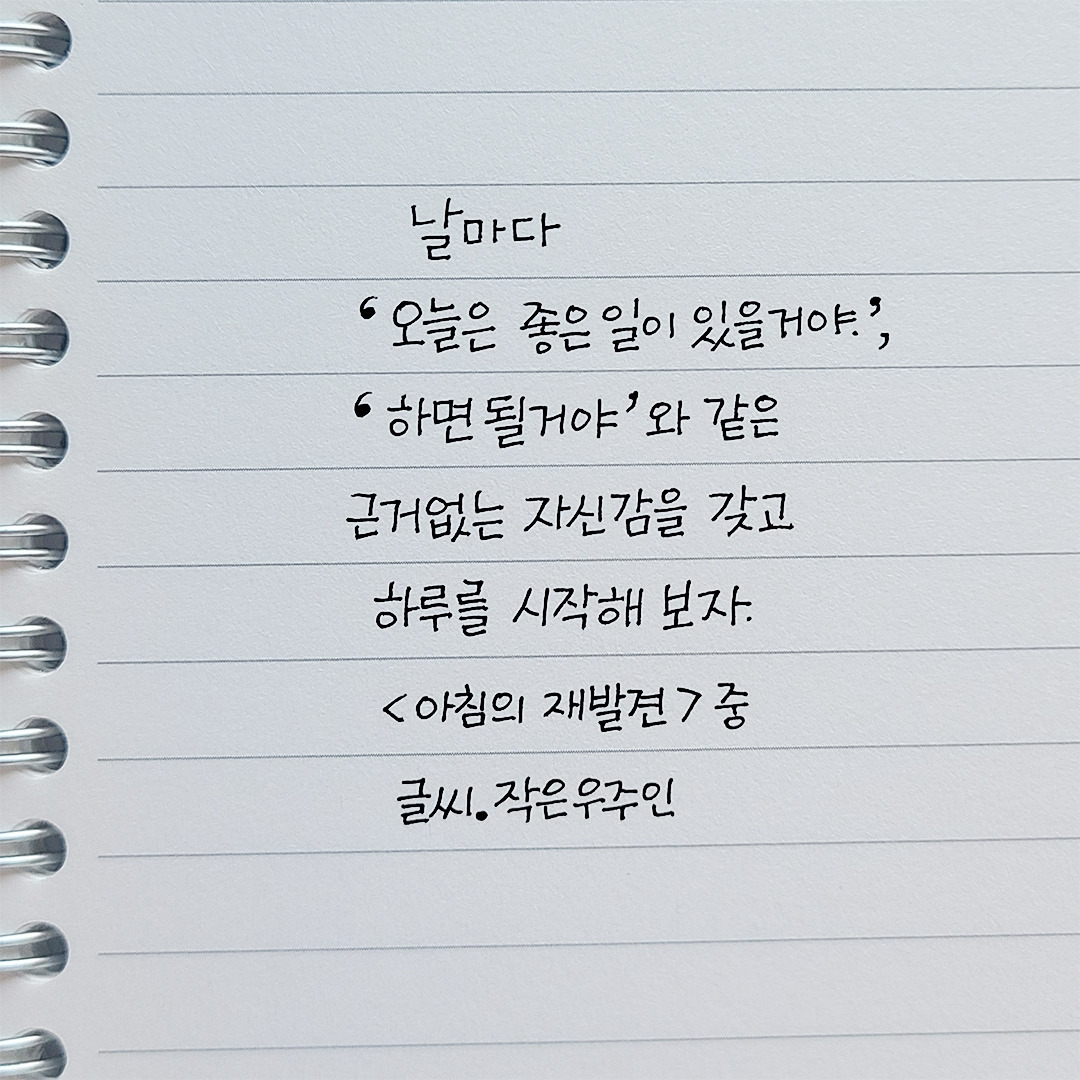 날마다
‘오늘은 좋은 일이 있을거야.’,
‘하면 될거야’와 같은
근거없는 자신감을 갖고
하루를 시작해 보자.
<아침의 재발견> 중
글씨.작은우주인